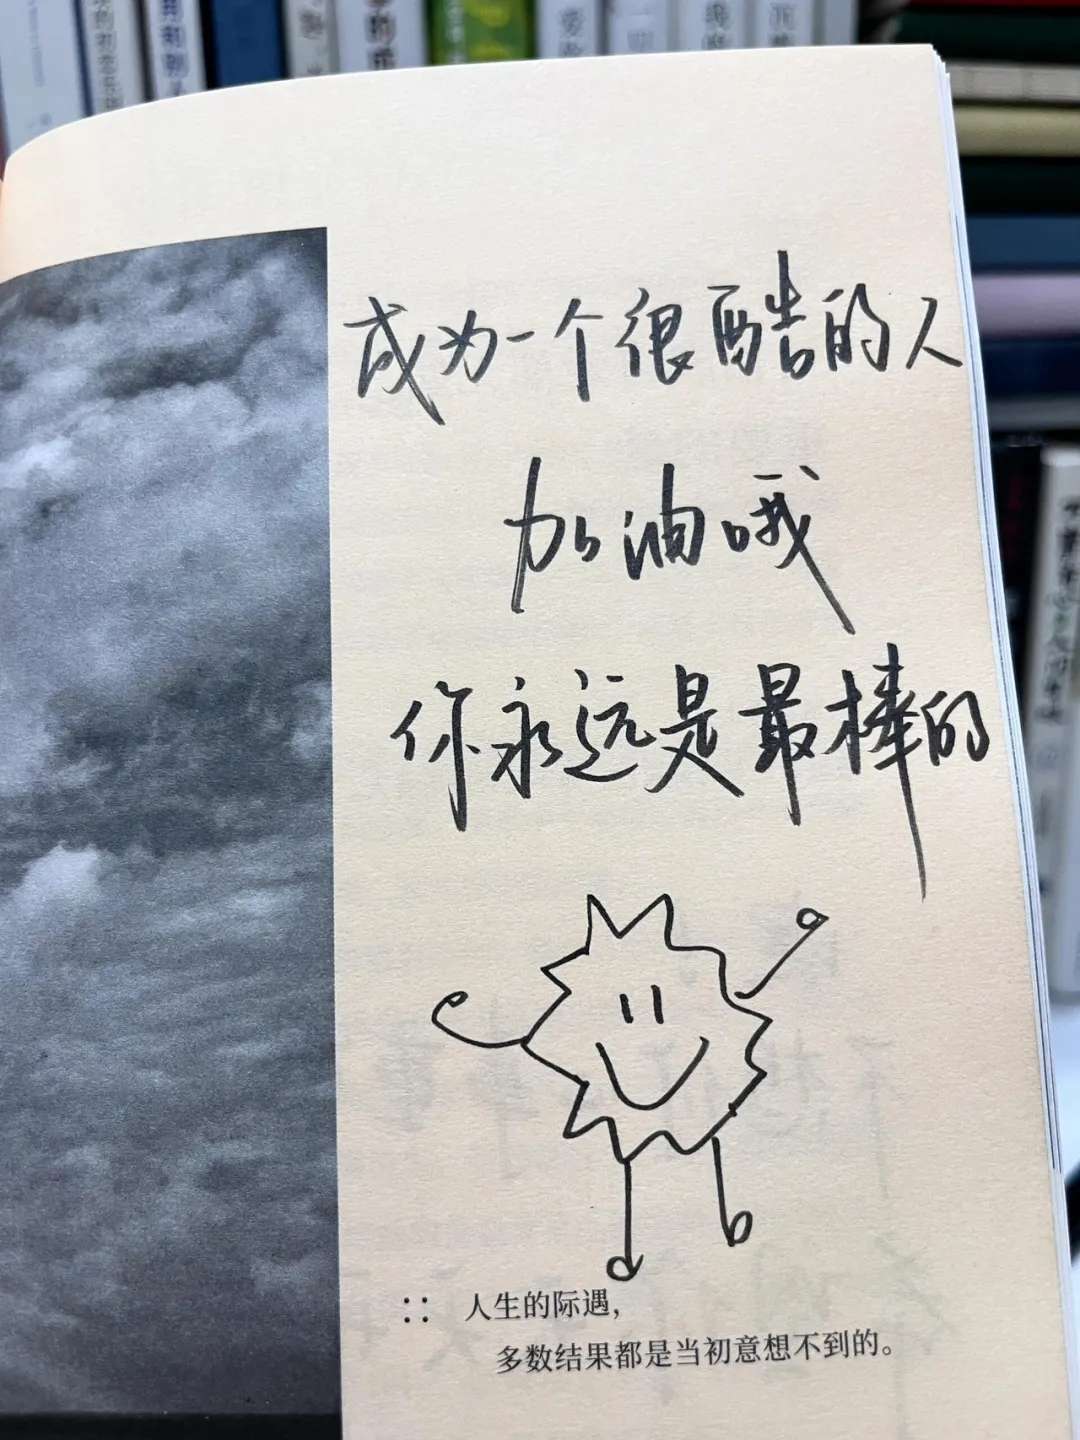 成为一个很酷的人
加油哦
你永远是最棒的
:: 人生的际遇，
多数结果都是当初意想不到的。